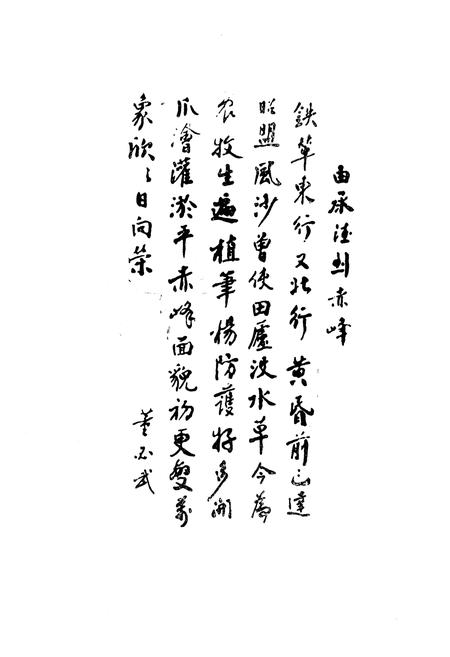 由承德到赤峰
鉄車東行又北行黄昏前已達
昭盟風沙曾使田廬没水草今為
农牧生遍植筆楊防護好多開
爪澮灌淤平赤峰面貌初更變萬
象欣々日向荣
董必武